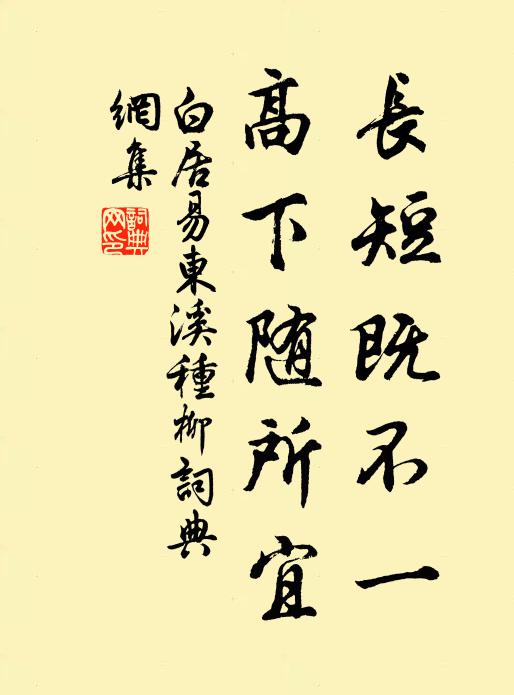 長短既不一
高下随所宜
白居易東溪種柳詞典
網集
詞典
网印